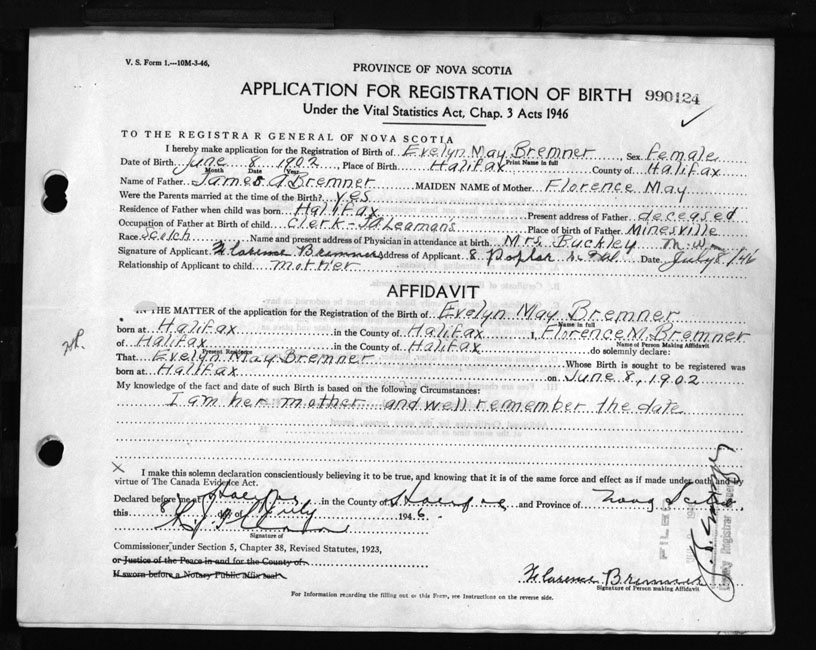 V. S. Form 1.—10M-3-46,
PROVINCE OF NOVA SCOTIA
APPLICATION FOR REGISTRATION OF BIRTH 990124
Under the Vital Statistics Act, Chap. 3 Acts 1946
TO THE REGISTRAR GENERAL OF NOVA SCOTIA
I hereby make application for the Registration of Birth of Evelyn May Bremner, Sex female
Print Name in full
Date of Birth June 8 1902, Place of Birth Halifax County of Halifax
Month Date Year
Name of Father James A Bremner MAIDEN NAME of Mother Florence May
Were the Parents married at the time of the Birth? yes
Residence of Father when child was born Halifax Present address of Father deceased
Occupation of Father at Birth of child Clerk - Leaman's Place of Birth of Father Minesville
Race Scotch Name and present address of Physician in attendance at birth Mrs. Buckley M.W.
Signature of Applicant Florence Bremner Address of Applicant 8 Poplar Date July 8/46
Relationship of Applicant to child mother
AFFIDAVIT
IN THE MATTER of the application for the Registration of the Birth of Evelyn May Bremner
Name in full
born at Halifax in the County of Halifax I, Florence M. Bremner
Name of Person Making Affidavit
of Halifax in the County of Halifax do solemnly declare:
Present Residence
That Evelyn May Bremner Whose Birth is sought to be registered was
born at Halifax on June 8, 1902
My knowledge of the fact and date of such Birth is based on the following Circumstances:
I am her mother and well remember the date
X I make this solemn declaration conscientiously believing it to be true, and knowing that it is of the same force and effect as if made under oath and by
virtue of The Canada Evidence Act.
Declared before me at Halifax in the County of Halifax and Province of Nova Scotia
this 8 day of July 1946.
Signature of
Commissioner under Section 5, Chapter 38, Revised Statutes, 1923,
or Justice of the Peace in and for the County of
If sworn before a Notary Public affix seal
Florence Bremner
Signature of Person making Affidavit
For Information regarding the filling out of this Form, see Instructions on the reverse side.
FILED
Deputy Registrar General